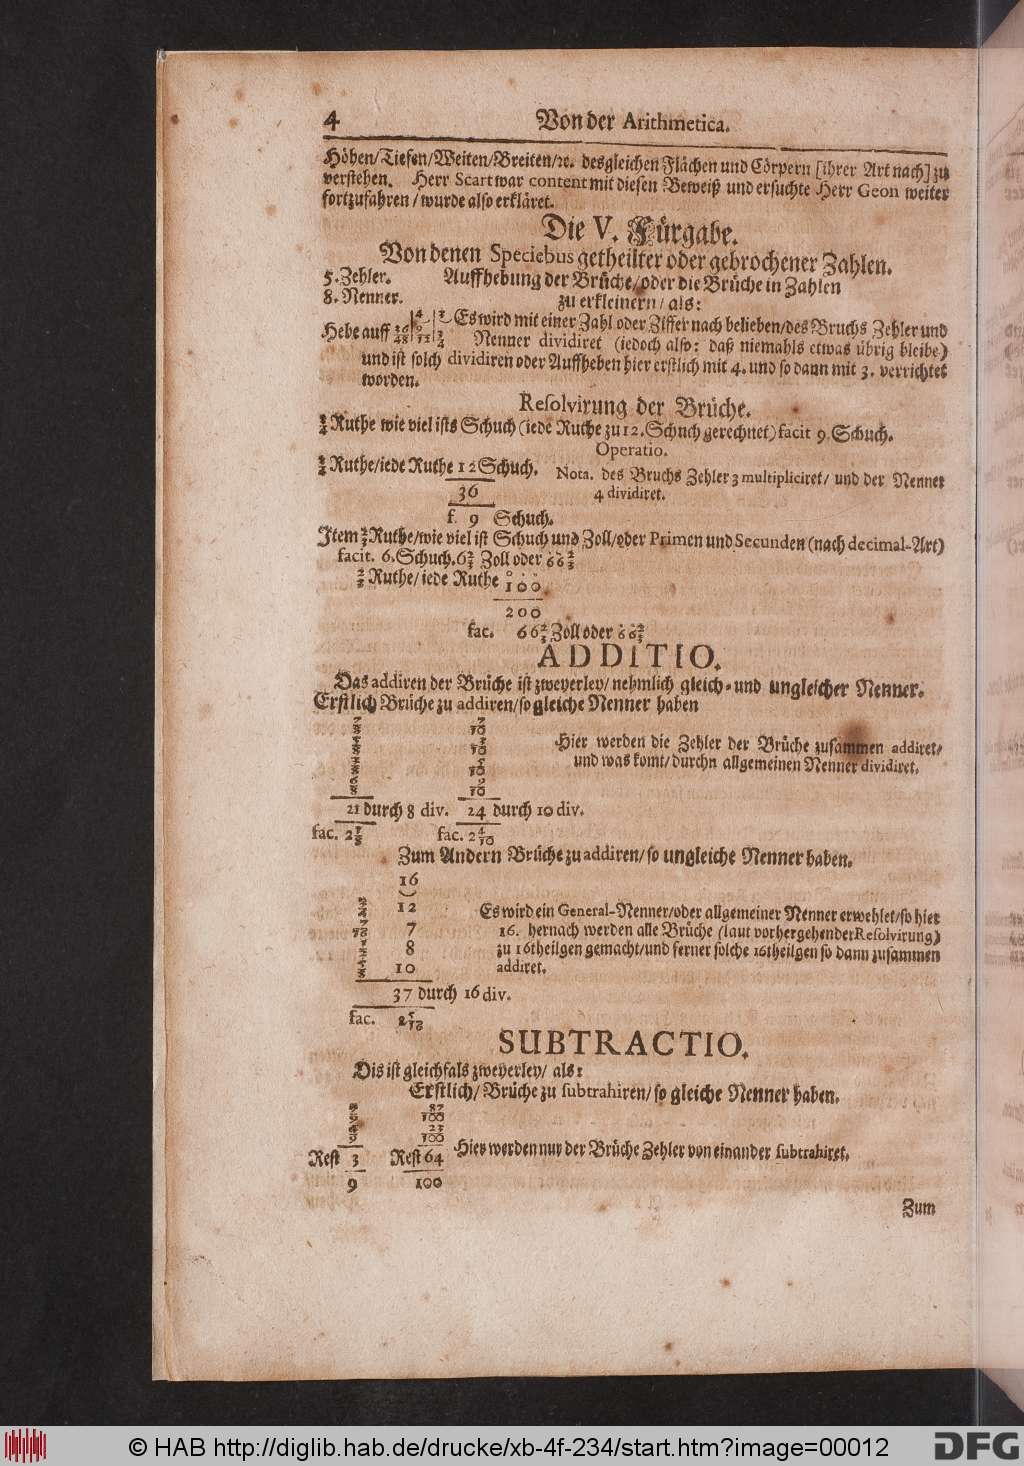 4 Von der Arithmetica.
Höhen/Tiefen/Weiten/Breiten/ꝛc. desgleichen Flächen und Cörpern [ihrer Art nach] zu
verstehen. Herr Scart war content mit diesen Beweiß und ersuchte Herr Geon weiter
fortzufahren / wurde also erkläret.
Die V. Fürgabe.
Von denen Speciebus getheilter oder gebrochener Zahlen.
5. Zehler. Auffhebung der Brüche/oder die Brüche in Zahlen
8. Nenner. zu erkleinern/ als:
Hebe auff 36/48 | 4 9/12 | 3 3/4 Es wird mit einer Zahl oder Ziffer nach belieben/des Bruchs Zehler und
Nenner dividiret (jedoch also: daß niemahls etwas übrig bleibe)
und ist solch dividiren oder Auffheben hier erstlich mit 4. und so dann mit 3. verrichtet
worden.
Resolvirung der Brüche.
3/4 Ruthe wie viel ists Schuch (iede Ruthe zu 12. Schuch gerechnet) facit 9. Schuch.
Operatio.
3/4 Ruthe/iede Ruthe 12 Schuch. Nota. des Bruchs Zehler 3 multipliciret/ und der Nenner
36 4 dividiret.
f. 9 Schuch.
Item 2/3 Ruthe/wie viel ist Schuch und Zoll/oder Primen und Secunden (nach decimal-Art)
facit. 6. Schuch. 6 2/3 Zoll oder 66 2/3
2/3 Ruthe/ iede Ruthe 100
200
fac. 66 2/3 Zoll oder 66 2/3
ADDITIO.
Das addiren der Brüche ist zweyerley/ nehmlich gleich- und ungleicher Nenner.
Erstlich Brüche zu addiren/so gleiche Nenner haben
Hier werden die Zehler der Brüche zusammen addiret/
und was komt/durchn allgemeinen Nenner dividiret.
21 durch 8 div. 24 durch 10 div.
fac. 2 5/8 fac. 2 4/10
Zum Andern Brüche zu addiren/ so ungleiche Nenner haben.
16
3/4 12 Es wird ein General-Nenner/oder allgemeiner Nenner erwehlet/so hier
7/16 7 16. hernach werden alle Brüche (laut vorhergehender Resolvirung)
1/2 8 zu 16theilgen gemacht/und ferner solche 16theilgen so dann zusammen
5/8 10 addiret.
37 durch 16 div.
fac. 2 5/16
SUBTRACTIO.
Dis ist gleichfals zweyerley/ als:
Erstlich/ Brüche zu subtrahiren/ so gleiche Nenner haben.
87/100
23/100
Rest 3 Rest 64 Hier werden nur der Brüche Zehler von einander subtrahiret.
9 100
Zum
© HAB http://diglib.hab.de/drucke/xb-4f-234/start.htm?image=00012 DFG